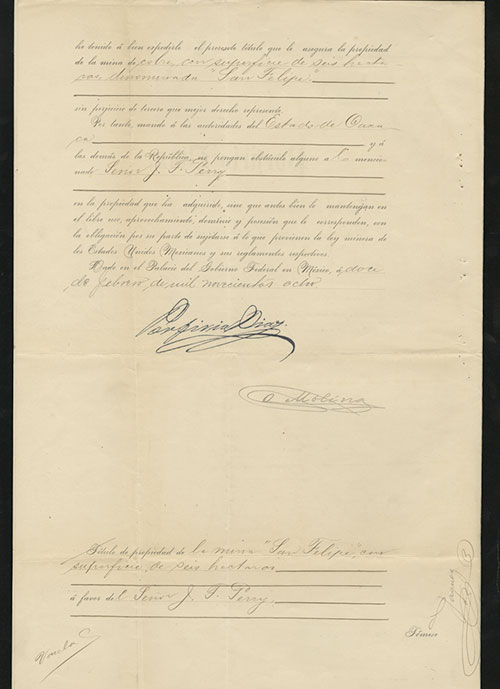 ha tenido á bien expedirle el presente título que le asegura la propiedad
de la mina de cobre, con superficie de seis hectá-
reas denominada "San Felipe"
sin perjuicio de tercero que mejor derecho represente.
Por tanto, manda á las autoridades del Estado de Oaxa-
ca y á
las demás de la República, no pongan obstáculo alguno á mencio-
nado Señor J. T. Perry
en la propiedad que ha adquirido, sino que antes bien le mantengan en
el libre uso, aprovechamiento, dominio y posesión que le corresponden, con
la obligación por su parte de sujetarse á lo que previenen la ley minera de
los Estados Unidos Mexicanos y sus reglamentos respectivos.
Dado en el Palacio del Gobierno Federal en México, á doce
de febrero de mil novecientos ocho
Porfirio Diaz.
O Molina
Título de propiedad de la mina "San Felipe", con
superficie de seis hectáreas
á favor del Señor J. T. Perry.